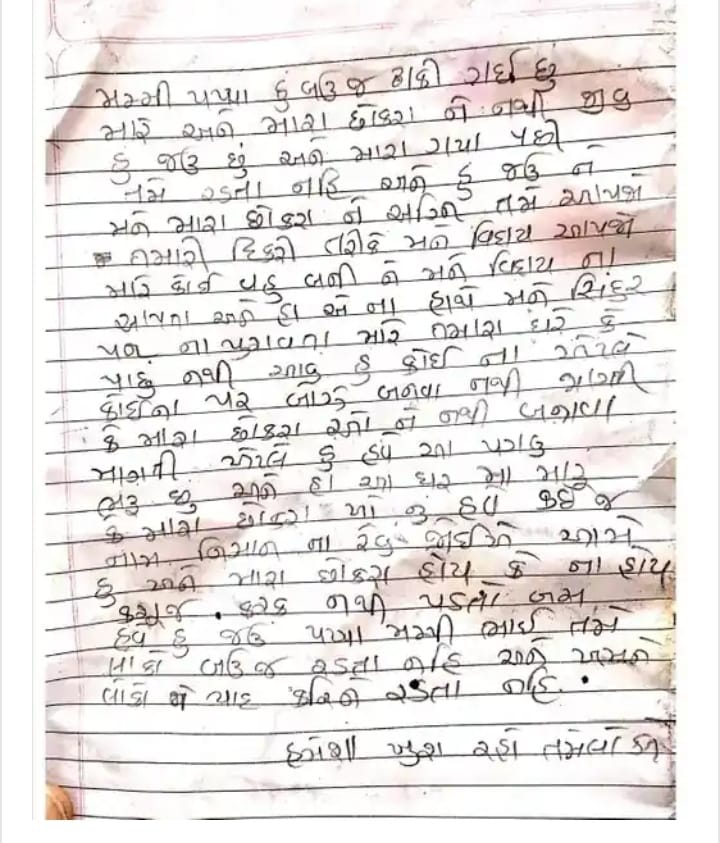 મમ્મી પપ્પા હું બઉજ થાકી ગઈ છું
મારે અને મારા છોકરા ને નથી જીવવુ
હું જઉ છું અને મારા ગયા પછી
તમે રડતા નહિ અને હું જઉ ને
મને મારા છોકરા ને અગ્નિ તમે આપજો
તમારી દિકરી તરીકે મને વિદાય આપજો
મારે કોઈ વહુ બની ને મને વિદાય ના
આપતા અને હા એ ના હાથે મને સિંદુર
પણ ના પુરાવતા મારે તમારા ઘરે કે
પાછું નથી આવવુ હુ કોઈ ના એટલે
કોઈના પર બોઝ બનવા નથી માગતી
કે મારા છોકરા ઓ ને નથી બનાવવા
માગતી એટલે હુ હવે આ પગલુ
ભરૂ છુ અને હા આ ઘર મા મારૂ
કે મારા છોકરા ઓ નુ હવે કઈ જ
નામ નિશાન ના રેવુ જોઈએ આમે
હુ અને મારા છોકરા હોય કે ના હોય
કશુજ . ફરક નથી પડતો બસ
હવે હુ જઉ પપ્પા મમ્મી ભાઈ તમે
લોકો બઉજ રડતા નહિ અને અમને
લોકો ને યાદ કરિને રડતા નહિ.
હમેશા ખુશ રહો તમેલોકો